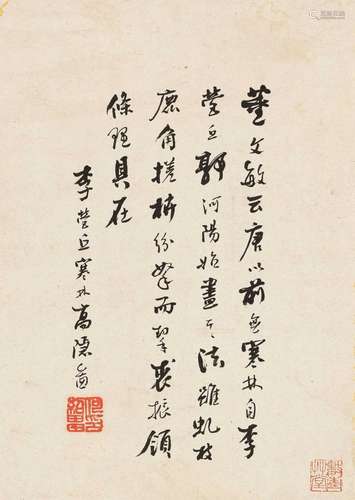 董文敏云唐以前無寒林自李
營丘郭河陽始盡其法雖虬枝
鹿角槎枿紛拏而挈裘振領
條理具在
李營丘寒林高隱圖